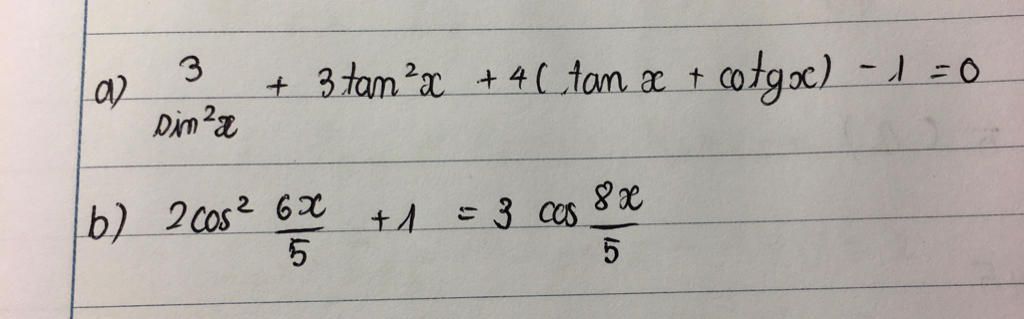 a) 3/sin²x + 3tan²x + 4(tan x + cotgx) - 1 = 0
b) 2cos² 6x/5 + 1 = 3 cos 8x/5